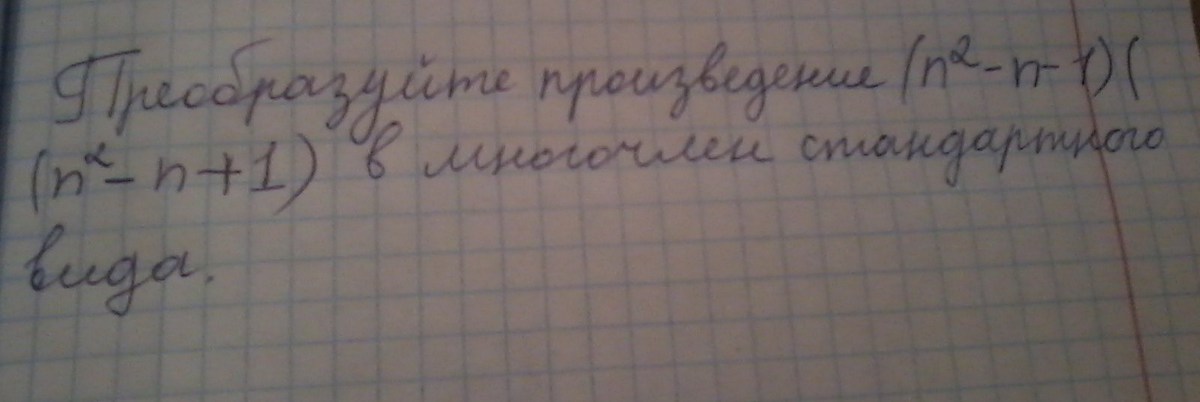 Преобразуйте произведение (n²-n-1)(
(n²-n+1) в многочлен стандартного
вида.